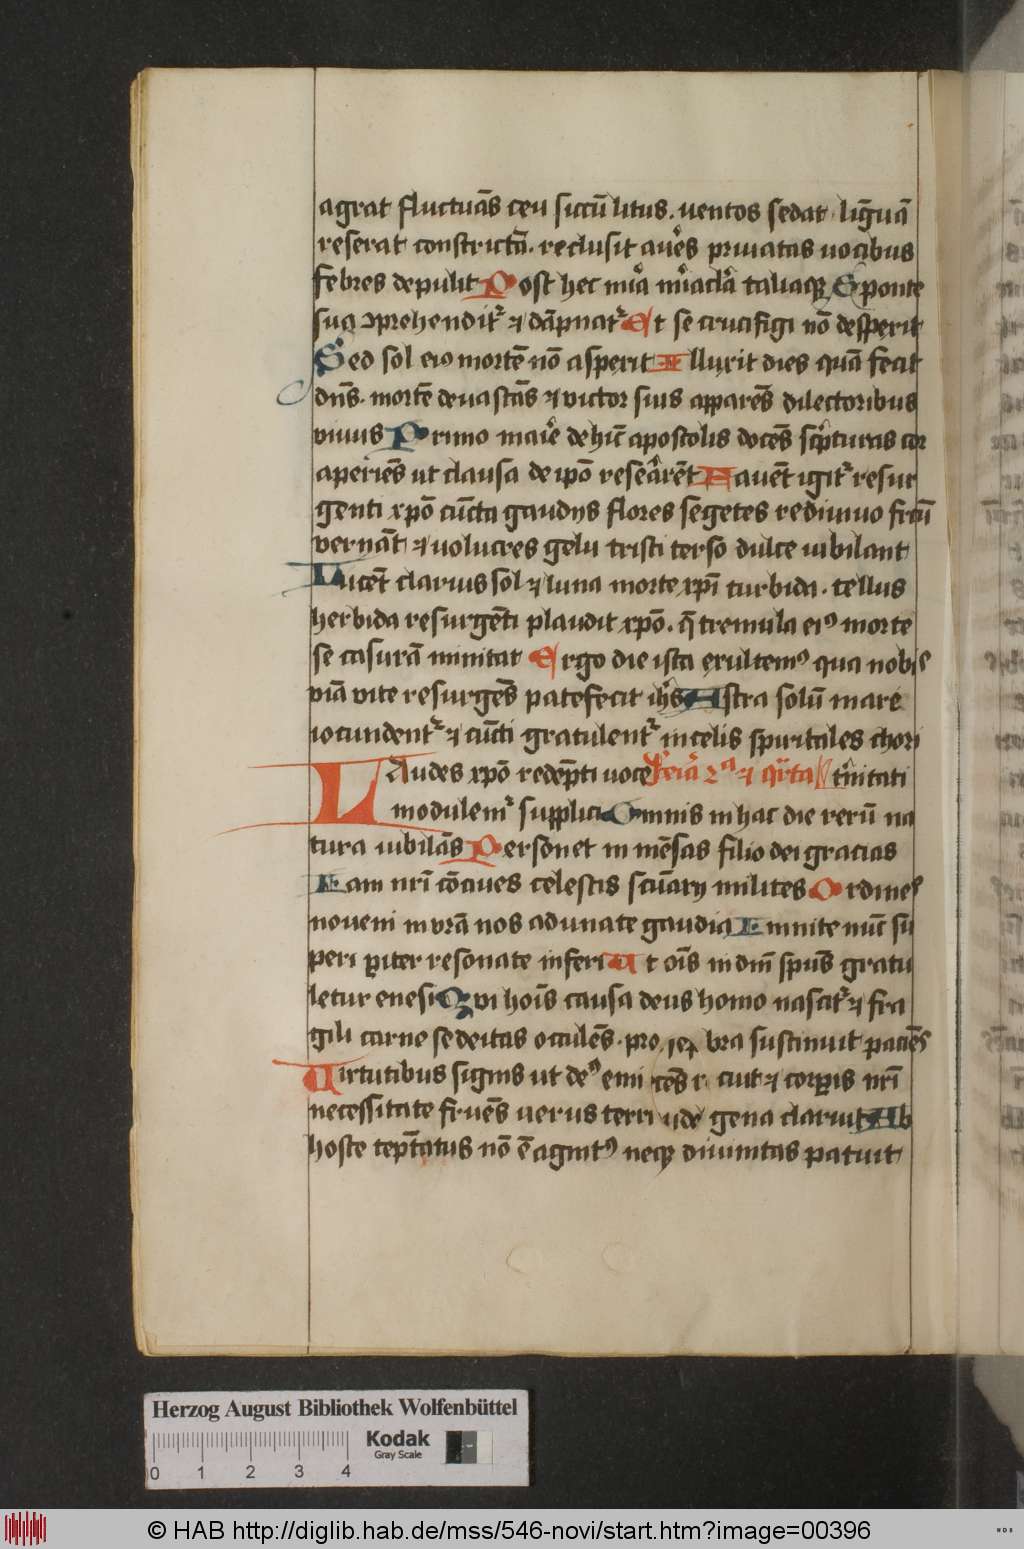 agrat fluctuās ceu siccū litus. uentos sedat. liguā
reserat constrictā. reclusit aures priuatas uocibus
febres depulit Post hec mira miracla taliaqꝫ Sponte
sua ꝯprehenditᷣ ⁊ dāpnatᷣ Et se crucifigi nō despexit
Sed sol eiꝰ mortē nō aspexit Illuxit dies quā fecit
dn̄s. mortē deuastās ⁊ victor suis apparēs dilectoribus
viuus Primo marie dehīc apostolis docēs scͥpturas cor
aperiēs ut clausa de ip̄o reserarēt Fauēt igitᷣ resur
genti xp̄o cūcta gaudijs flores segetes rediuiuo frcū
vernāt ⁊ uolucres gelu tristi terso dulce iubilant
Lucēt clarius sol ⁊ luna morte xp̄i turbida. tellus
herbida resurgēti plaudit xp̄o. q̄ tremula eiꝰ morte
se casurā minitat Ergo die ista exultemꝰ qua nobis
viā vite resurgēs patefecit ih̄s Astra solū mare
iocundentᷣ ⁊ cūcti gratulentᷣ in celis spūitales chori
LAudes xp̄o redēpti uoce feria 2ᵃ ⁊ qͣrta tͥnitati
modulemᷣ supplici Omnis in hac die rerū na
tura iubilās Personet in mēsas filio dei gracias
Eam nr̄i cōciues celestis scūarij milites Ordines
noueni in vr̄a nos adunate gaudia Emnite nūc su
peri pariter resonate inferi Ut oīs in dn̄m spūs gratu
letur enesi Qui hoīs causa deus homo nascitᷣ ⁊ fra
gili carne se deitas occulēs. pro bra sustinuit paciēs
Uirtutibus signis ut deꝰ emi cēs ⁊ corpis nr̄i
necessitate fruēs uerus terri gena claruit Ab
hoste teptatus nō ē agnitꝰ neqꝫ diuinitas patuit
Herzog August Bibliothek Wolfenbüttel
Kodak
Gray Scale
0 1 2 3 4
© HAB http://diglib.hab.de/mss/546-novi/start.htm?image=00396